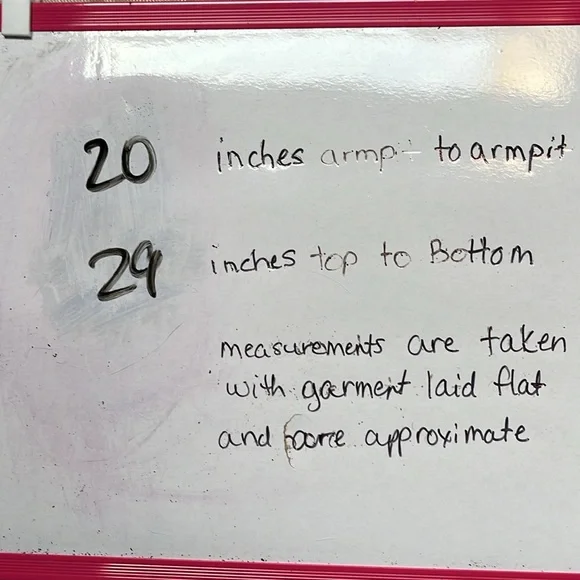 20 inches armpit to armpit
29 inches top to Bottom
measurements are taken
with garment laid flat
and are approximate